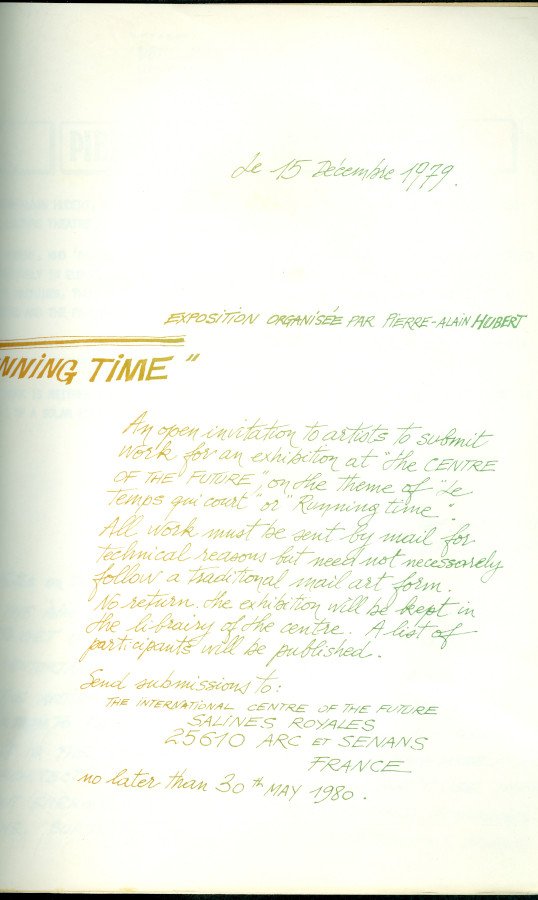 Le 15 Décembre 1979.
EXPOSITION ORGANISÉE PAR PIERRE-ALAIN HUBERT
NNING TIME "
An open invitation to artists to submit
work for an exhibition at "the CENTRE
OF THE FUTURE", on the theme of "Le
Temps qui court" or "Running time".
All work must be sent by mail for
technical reasons but need not necessarely
follow a traditional mail art form.
No return. the exhibition will be kept in
the librairy of the centre. A list of
participants will be published.
Send submissions to:
THE INTERNATIONAL CENTRE OF THE FUTURE
SALINES ROYALES
25610 ARC ET SENANS
FRANCE
no later than 30th MAY 1980.